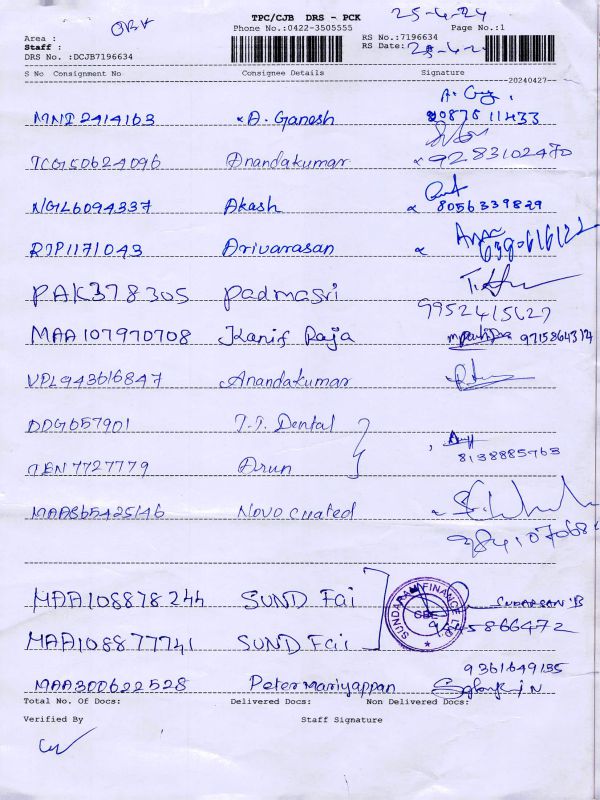 TPC/CJB DRS - PCK
25-4-24
OBV
Phone No.:0422-3505555
RS No.:7196634
Page No.:1
Area :
Staff :
RS Date:
DRS No. :DCJB7196634
S No Consignment No Consignee Details Signature
20240427
MNI2414163 A. Ganesh
TCG150624096 Anandakumar 9283102470
NGL6094337 Akash 8056339829
RJP1171043 Arivarasan
PAK378305 Padmasri
9952415627
MAA107970708 Kanif Raja
VPL943616847 Anandakumar
DDG657901 T.T. Dental
8138885763
TEN7727779 Arun
MAA865425146 Novo cuated
MAA108878244 SUND Fai
SUNDARAM FINANCE LTD. CBE
MAA108877741 SUND Fai
9361649135
MAA300622528 Peter mariyappan
Total No. Of Docs: Delivered Docs: Non Delivered Docs:
Verified By Staff Signature